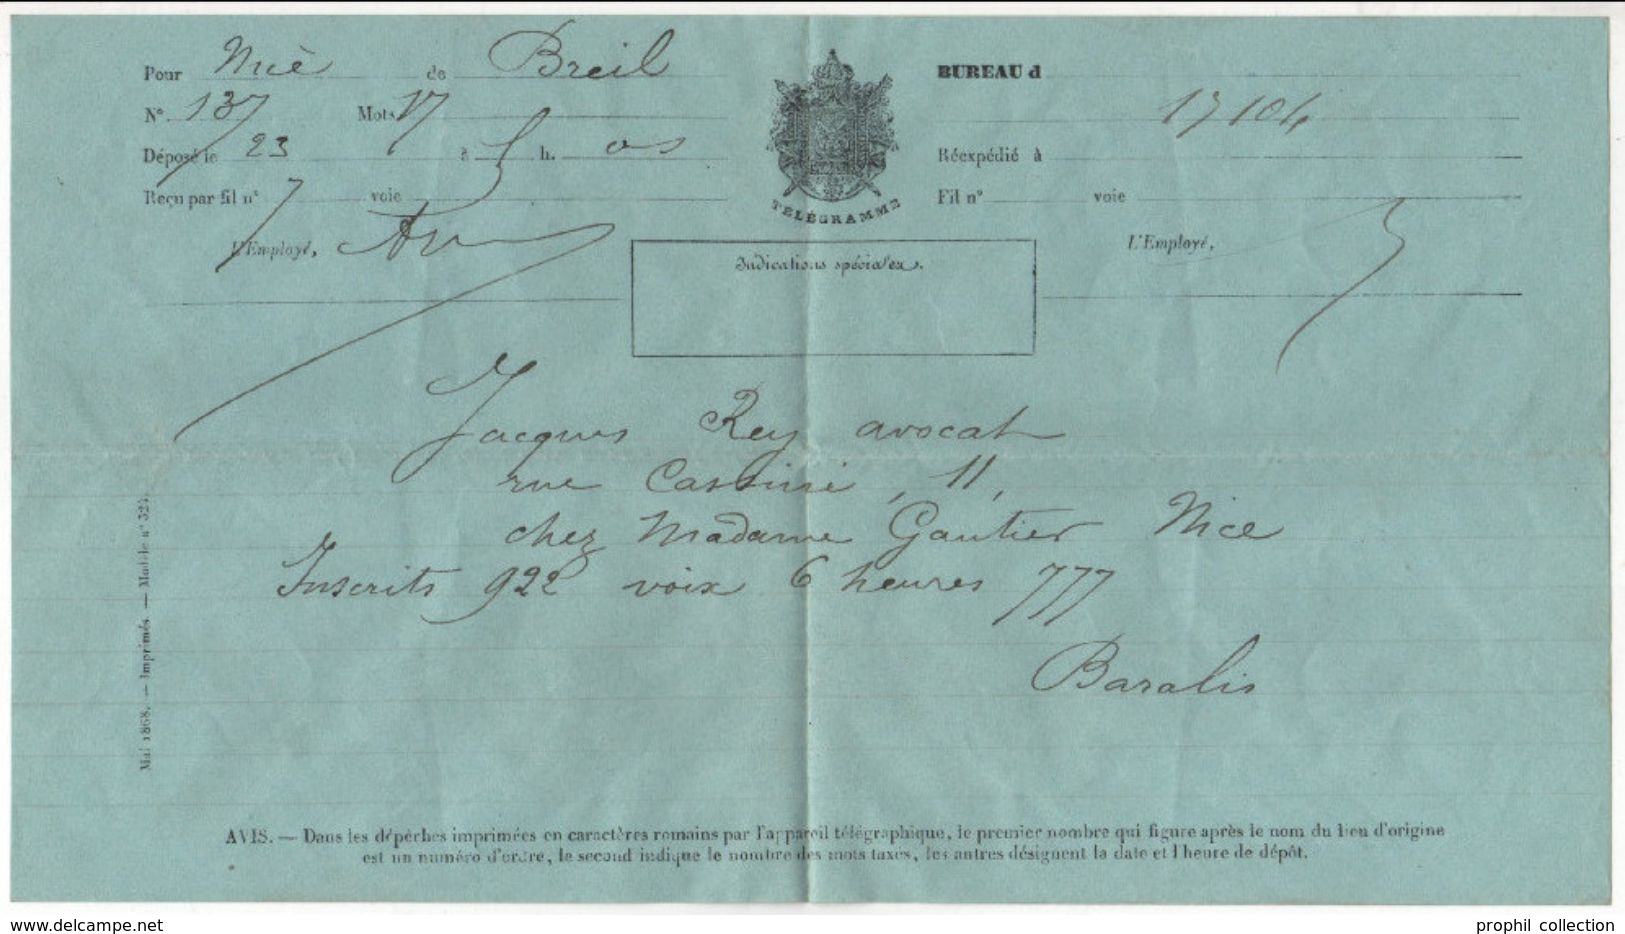 Pour Nice de Breil
N°. 137 Mots 17
Déposé le 23 à 5 h. os
Reçu par fil n° 7 voie
L'Employé,
TÉLÉGRAMME
Indications spéciales.
BUREAU d
17104
Réexpédié à
Fil n° voie
L'Employé,
Jacques Rey avocat
rue Cassini, 11,
chez Madame Gautier Nice
Inscrits 922 voix 6 heures 777
Baralis
Mai 1868. — Imprimés. — Modèle n° 324.
AVIS. — Dans les dépêches imprimées en caractères romains par l'appareil télégraphique, le premier nombre qui figure après le nom du lieu d'origine
est un numéro d'ordre, le second indique le nombre des mots taxés, les autres désignent la date et l'heure de dépôt.
www.delcampe.net
prophil collection